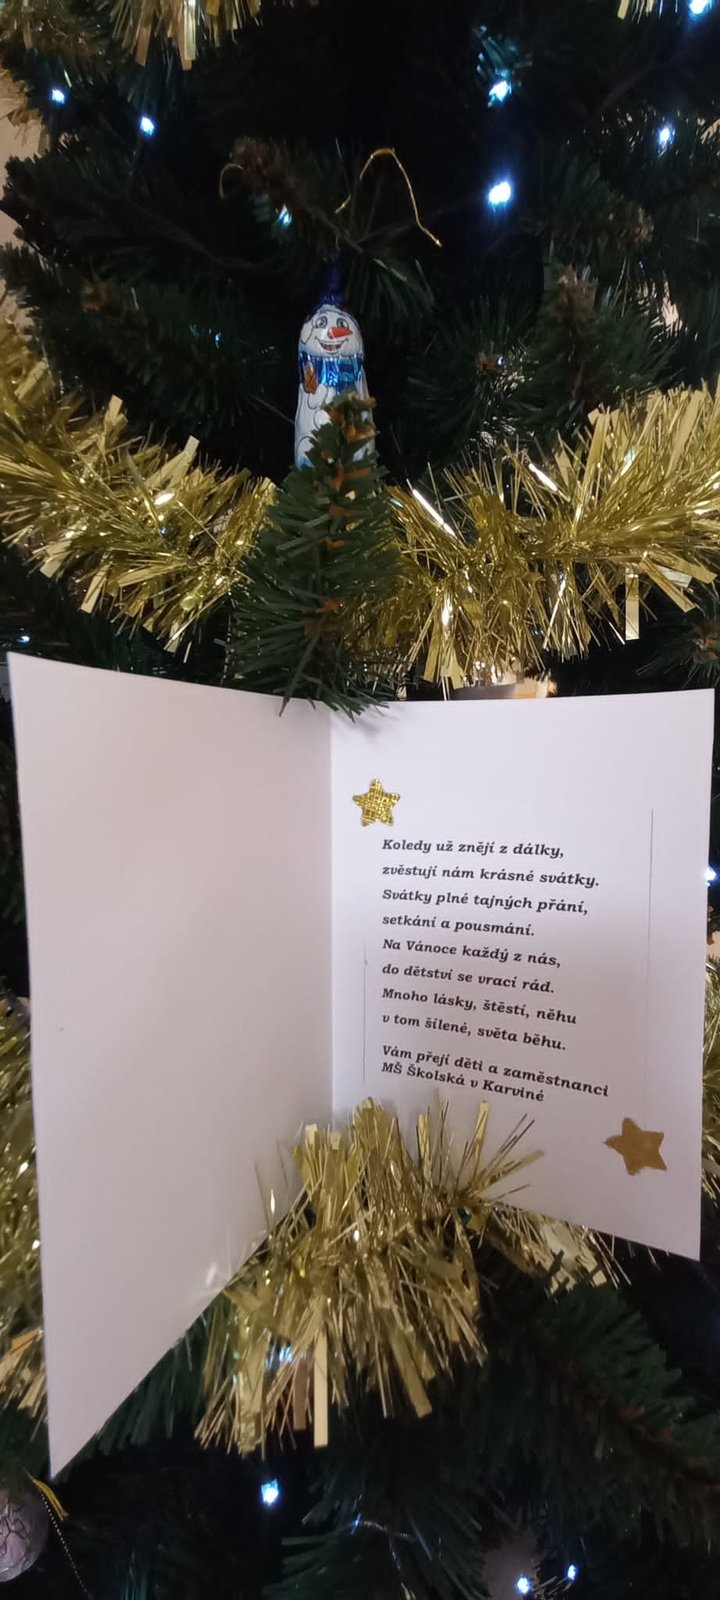 Koledy už znějí z dálky,
zvěstují nám krásné svátky.
Svátky plné tajných přání,
setkání a pousmání.
Na Vánoce každý z nás,
do dětství se vrací rád.
Mnoho lásky, štěstí, něhu
v tom šílené, světa běhu.
Vám přejí děti a zaměstnanci
MŠ Školská v Karviné